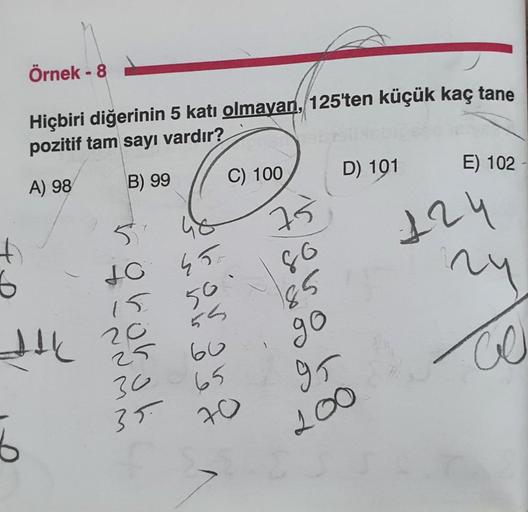 Örnek - 8
Hiçbiri diğerinin 5 katı olmayan, 125'ten küçük kaç tane
pozitif tam sayı vardır?
A) 98 B) 99 C) 100 D) 101 E) 102
5 40 75
10 45 80
15 50 85
20 55 90
25 60 95
30 65 100
35 70
124
24